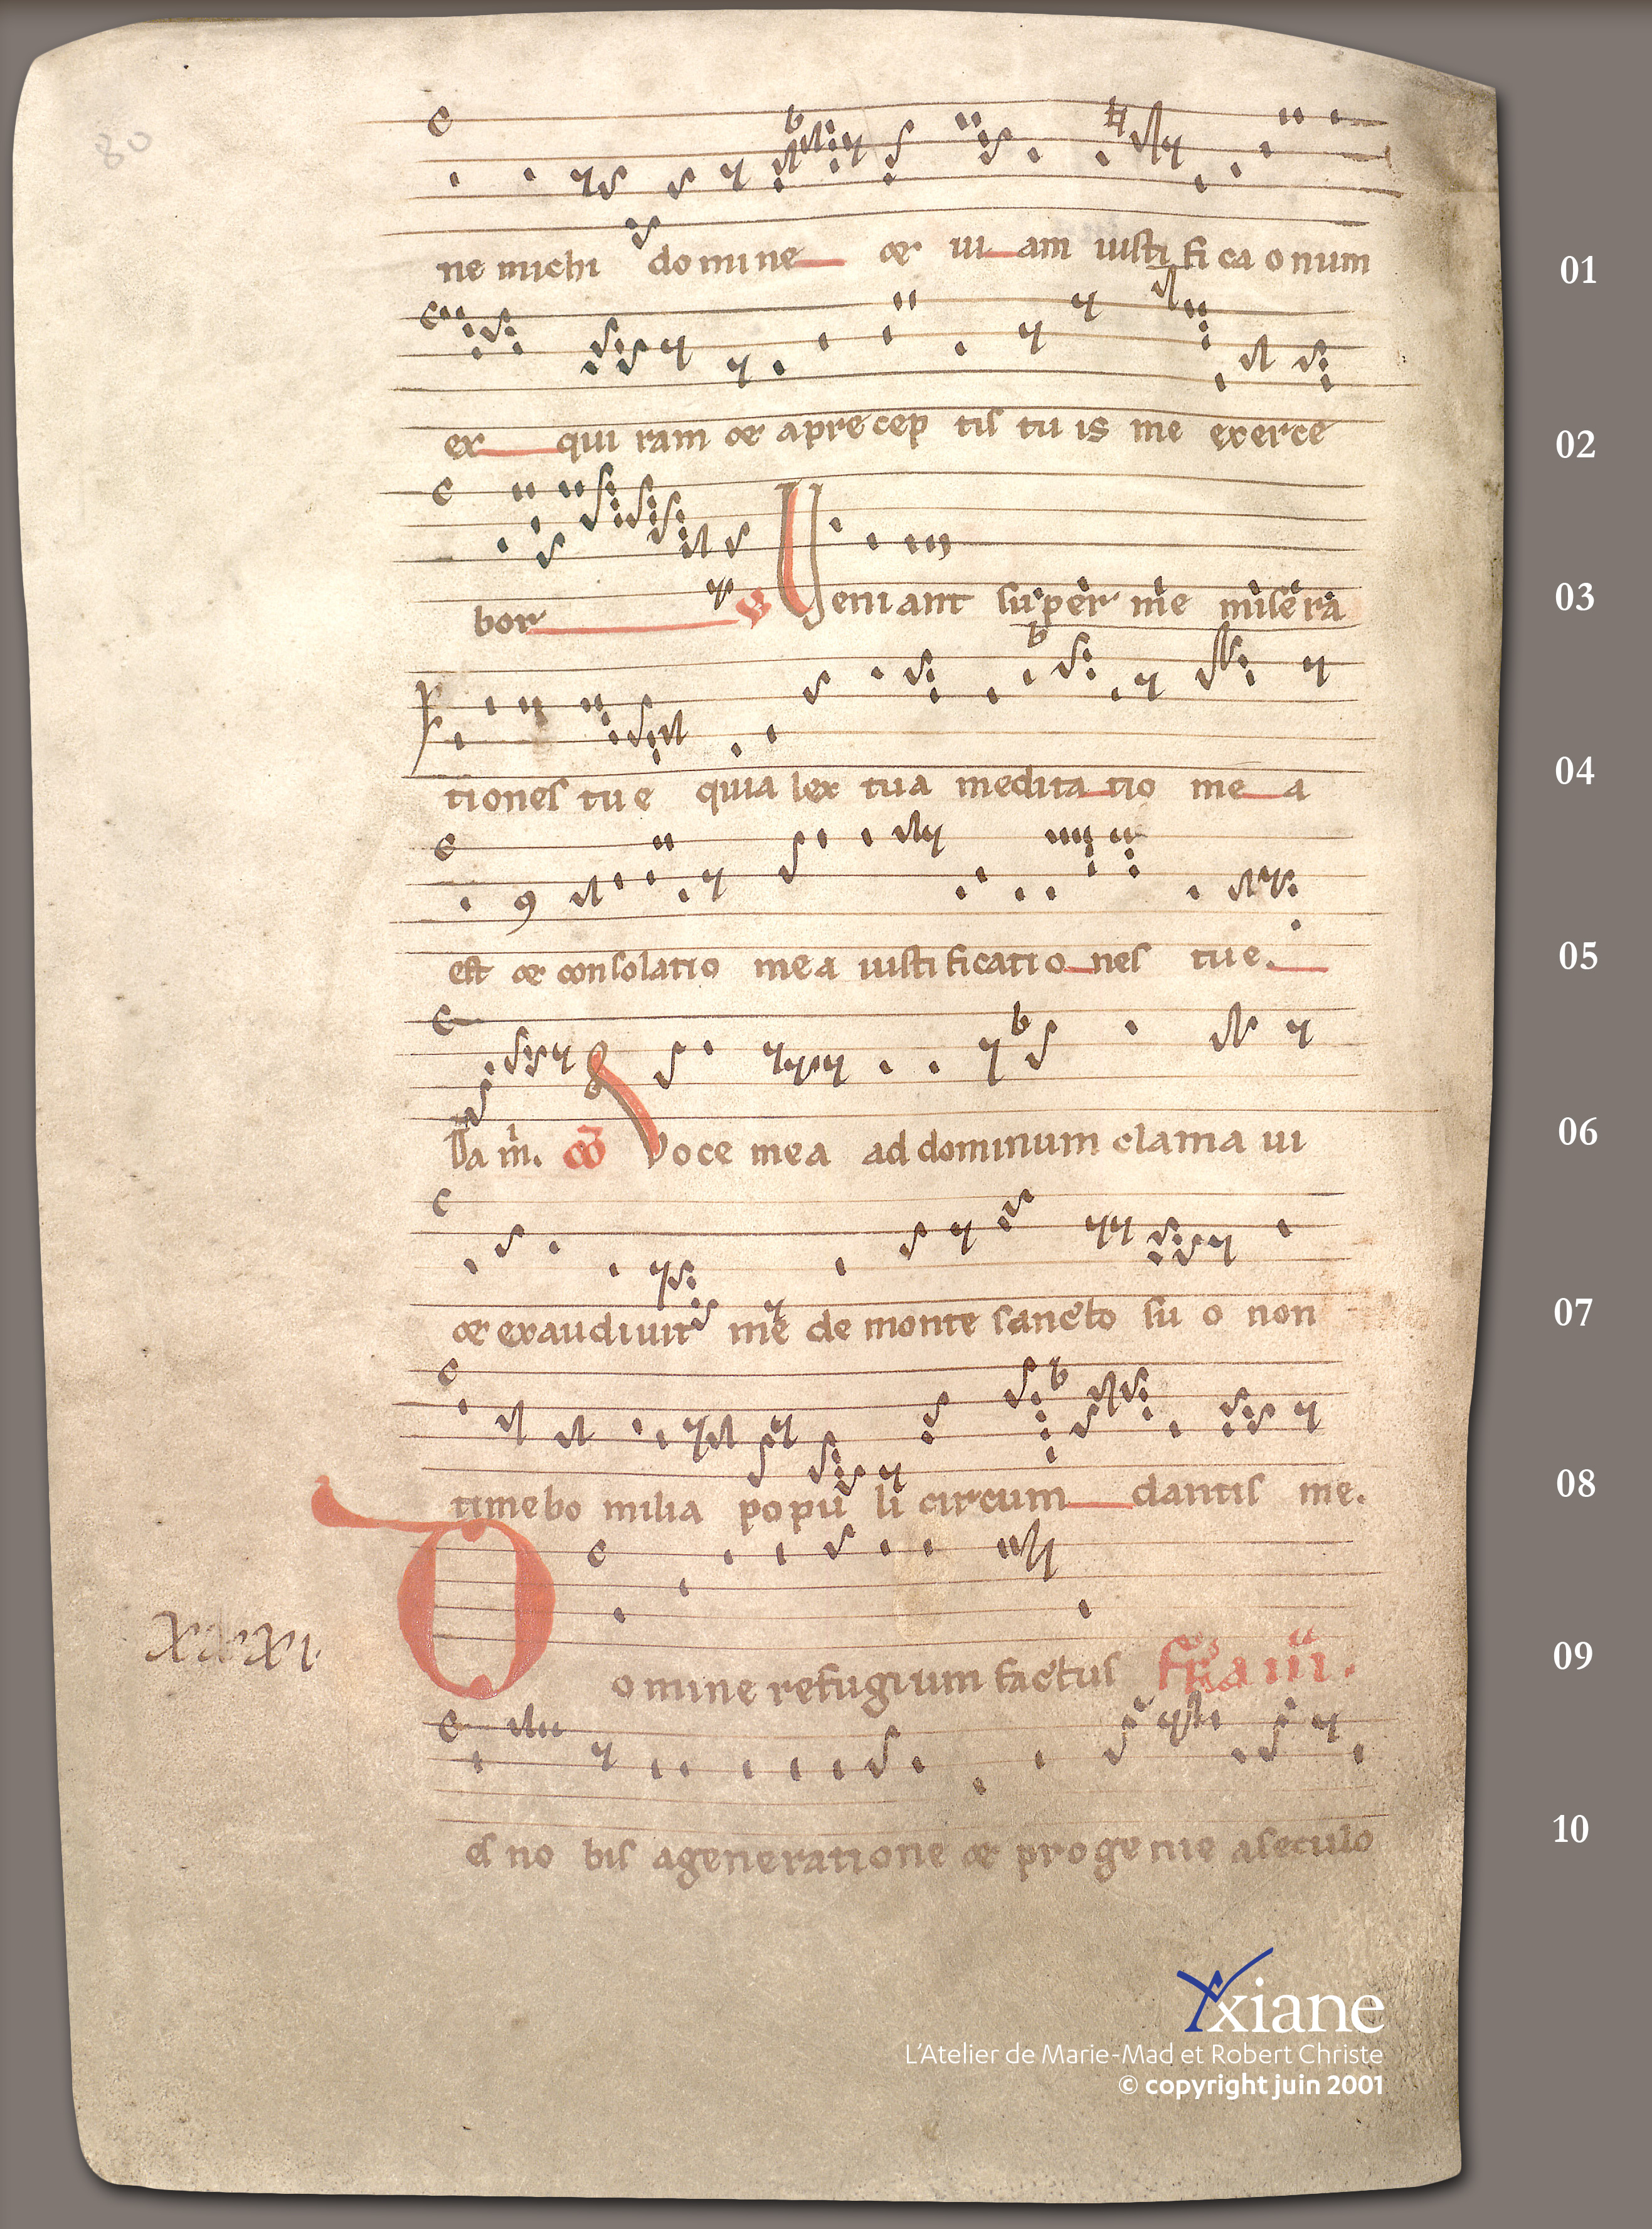 80
ne michi domine et ui am iusti fi ca onum
01
ex qui ram et a precep tis tu is me exerce
02
bor Ueniant super me misera
03
tiones tue quia lex tua medita tio me a
04
est et consolatio mea iustificatio nes tue.
05
Da m. co Voce mea ad dominum clama ui
06
et exaudiuit me de monte sancto su o non
07
timebo milia popu li circum dantis me.
08
Domine refugium factus
xxxi.
09
es no bis a generatione et progenie a seculo
10
Yxiane
L'Atelier de Marie-Mad et Robert Christe
© copyright juin 2001